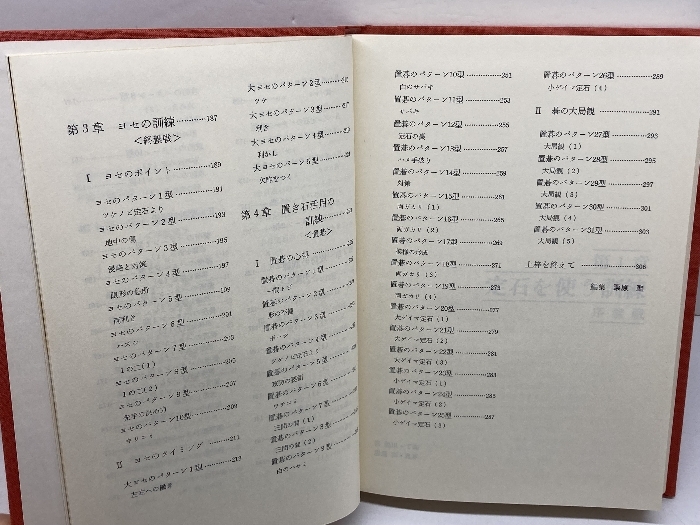 第3章 ヨセの訓練 187
<終盤戦>
Ⅰ ヨセのポイント 189
ヨセのパターン1型 191
ツケノビ定石より
ヨセのパターン2型 193
ヨセのパターン3型 195
ヨセのパターン4型 197
ヨセのパターン5型
ヨセのパターン6型
ハネツギ
ヨセのパターン7型
1の二(1)
ヨセのパターン8型 205
1の二(2)
ヨセのパターン9型 207
ヨセのパターン10型 209
Ⅱ ヨセのタイミング 211
大ヨセのパターン1型 213
大ヨセのパターン2型
ツケ
大ヨセのパターン3型
利き
大ヨセのパターン4型
利かし
大ヨセのパターン5型
欠陥をつく
第4章 置き石活用の
訓練
<置碁>
Ⅰ 置碁の心得
置碁のパターン1型
置碁のパターン2型
置碁のパターン3型
置碁のパターン4型
置碁のパターン5型
置碁のパターン6型
置碁のパターン7型
三間の翼(1)
置碁のパターン8型
三間の翼(2)
置碁のパターン9型
白のハサミ
置碁のパターン10型 251
白のサバキ
置碁のパターン11型 253
置碁のパターン12型 255
定石の選
置碁のパターン13型 257
ハメ手破り
置碁のパターン14型 259
置碁のパターン15型 261
両ガカリ(1)
置碁のパターン16型 265
両ガカリ(2)
置碁のパターン17型 268
模様の形成
置碁のパターン18型 271
両ガカリ(3)
置碁のパターン19型 273
両ガカリ(4)
置碁のパターン20型 277
大ゲイマ定石(1)
置碁のパターン21型 279
大ゲイマ定石(2)
置碁のパターン22型 281
大ゲイマ定石(3)
置碁のパターン23型 283
小ゲイマ定石(1)
置碁のパターン24型 285
小ゲイマ定石(2)
置碁のパターン25型 287
小ゲイマ定石(3)
置碁のパターン26型 289
小ゲイマ定石(4)
Ⅱ 碁の大局観 291
置碁のパターン27型 293
大局観(1)
置碁のパターン28型 295
大局観(2)
置碁のパターン29型 297
大局観(3)
置碁のパターン30型 301
大局観(4)
置碁のパターン31型 303
大局観(5)
上梓を終えて 306